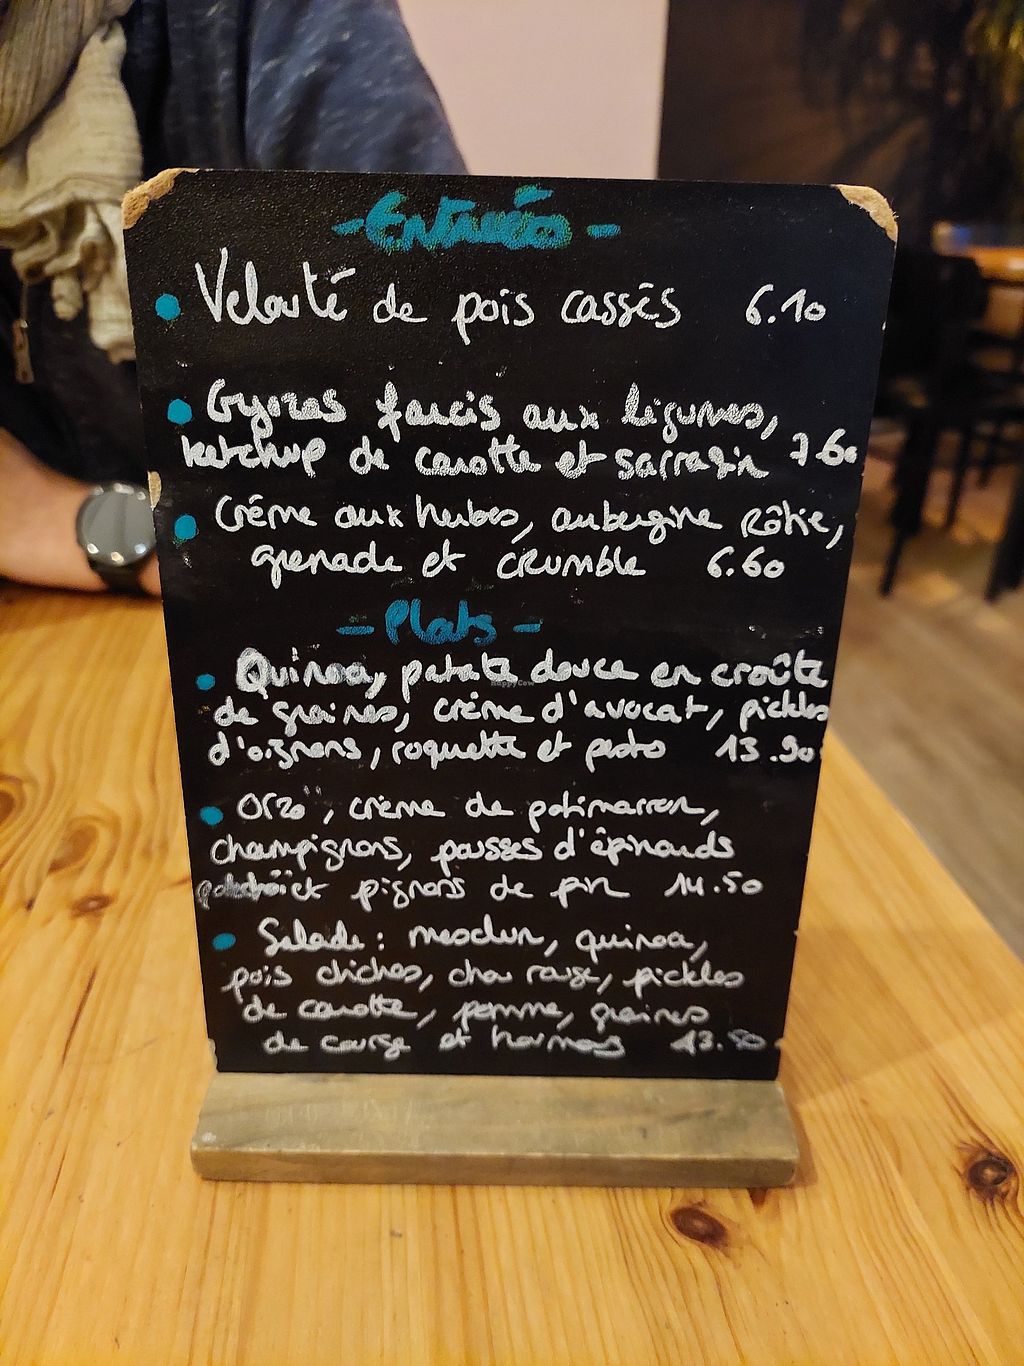 - Entrées -
Velouté de pois cassés 6.10
Gyozas farcis aux légumes,
ketchup de carotte et sarrasin 7.60
Crème aux herbes, aubergine Rôtie,
grenade et CRUMBLE 6.60
- Plats -
Quinoa, patate douce en croûte
de graines, crème d'avocat, pickles
d'oignons, roquette et pesto 13.90
Orzo, crème de potimarron,
champignons, pousses d'épinards
et pignons de pin 14.50
Salade : mesclun, quinoa,
pois chiches, chou rouge, pickles
de carotte, pomme, graines
de courge et houmous 13.50
HappyCow